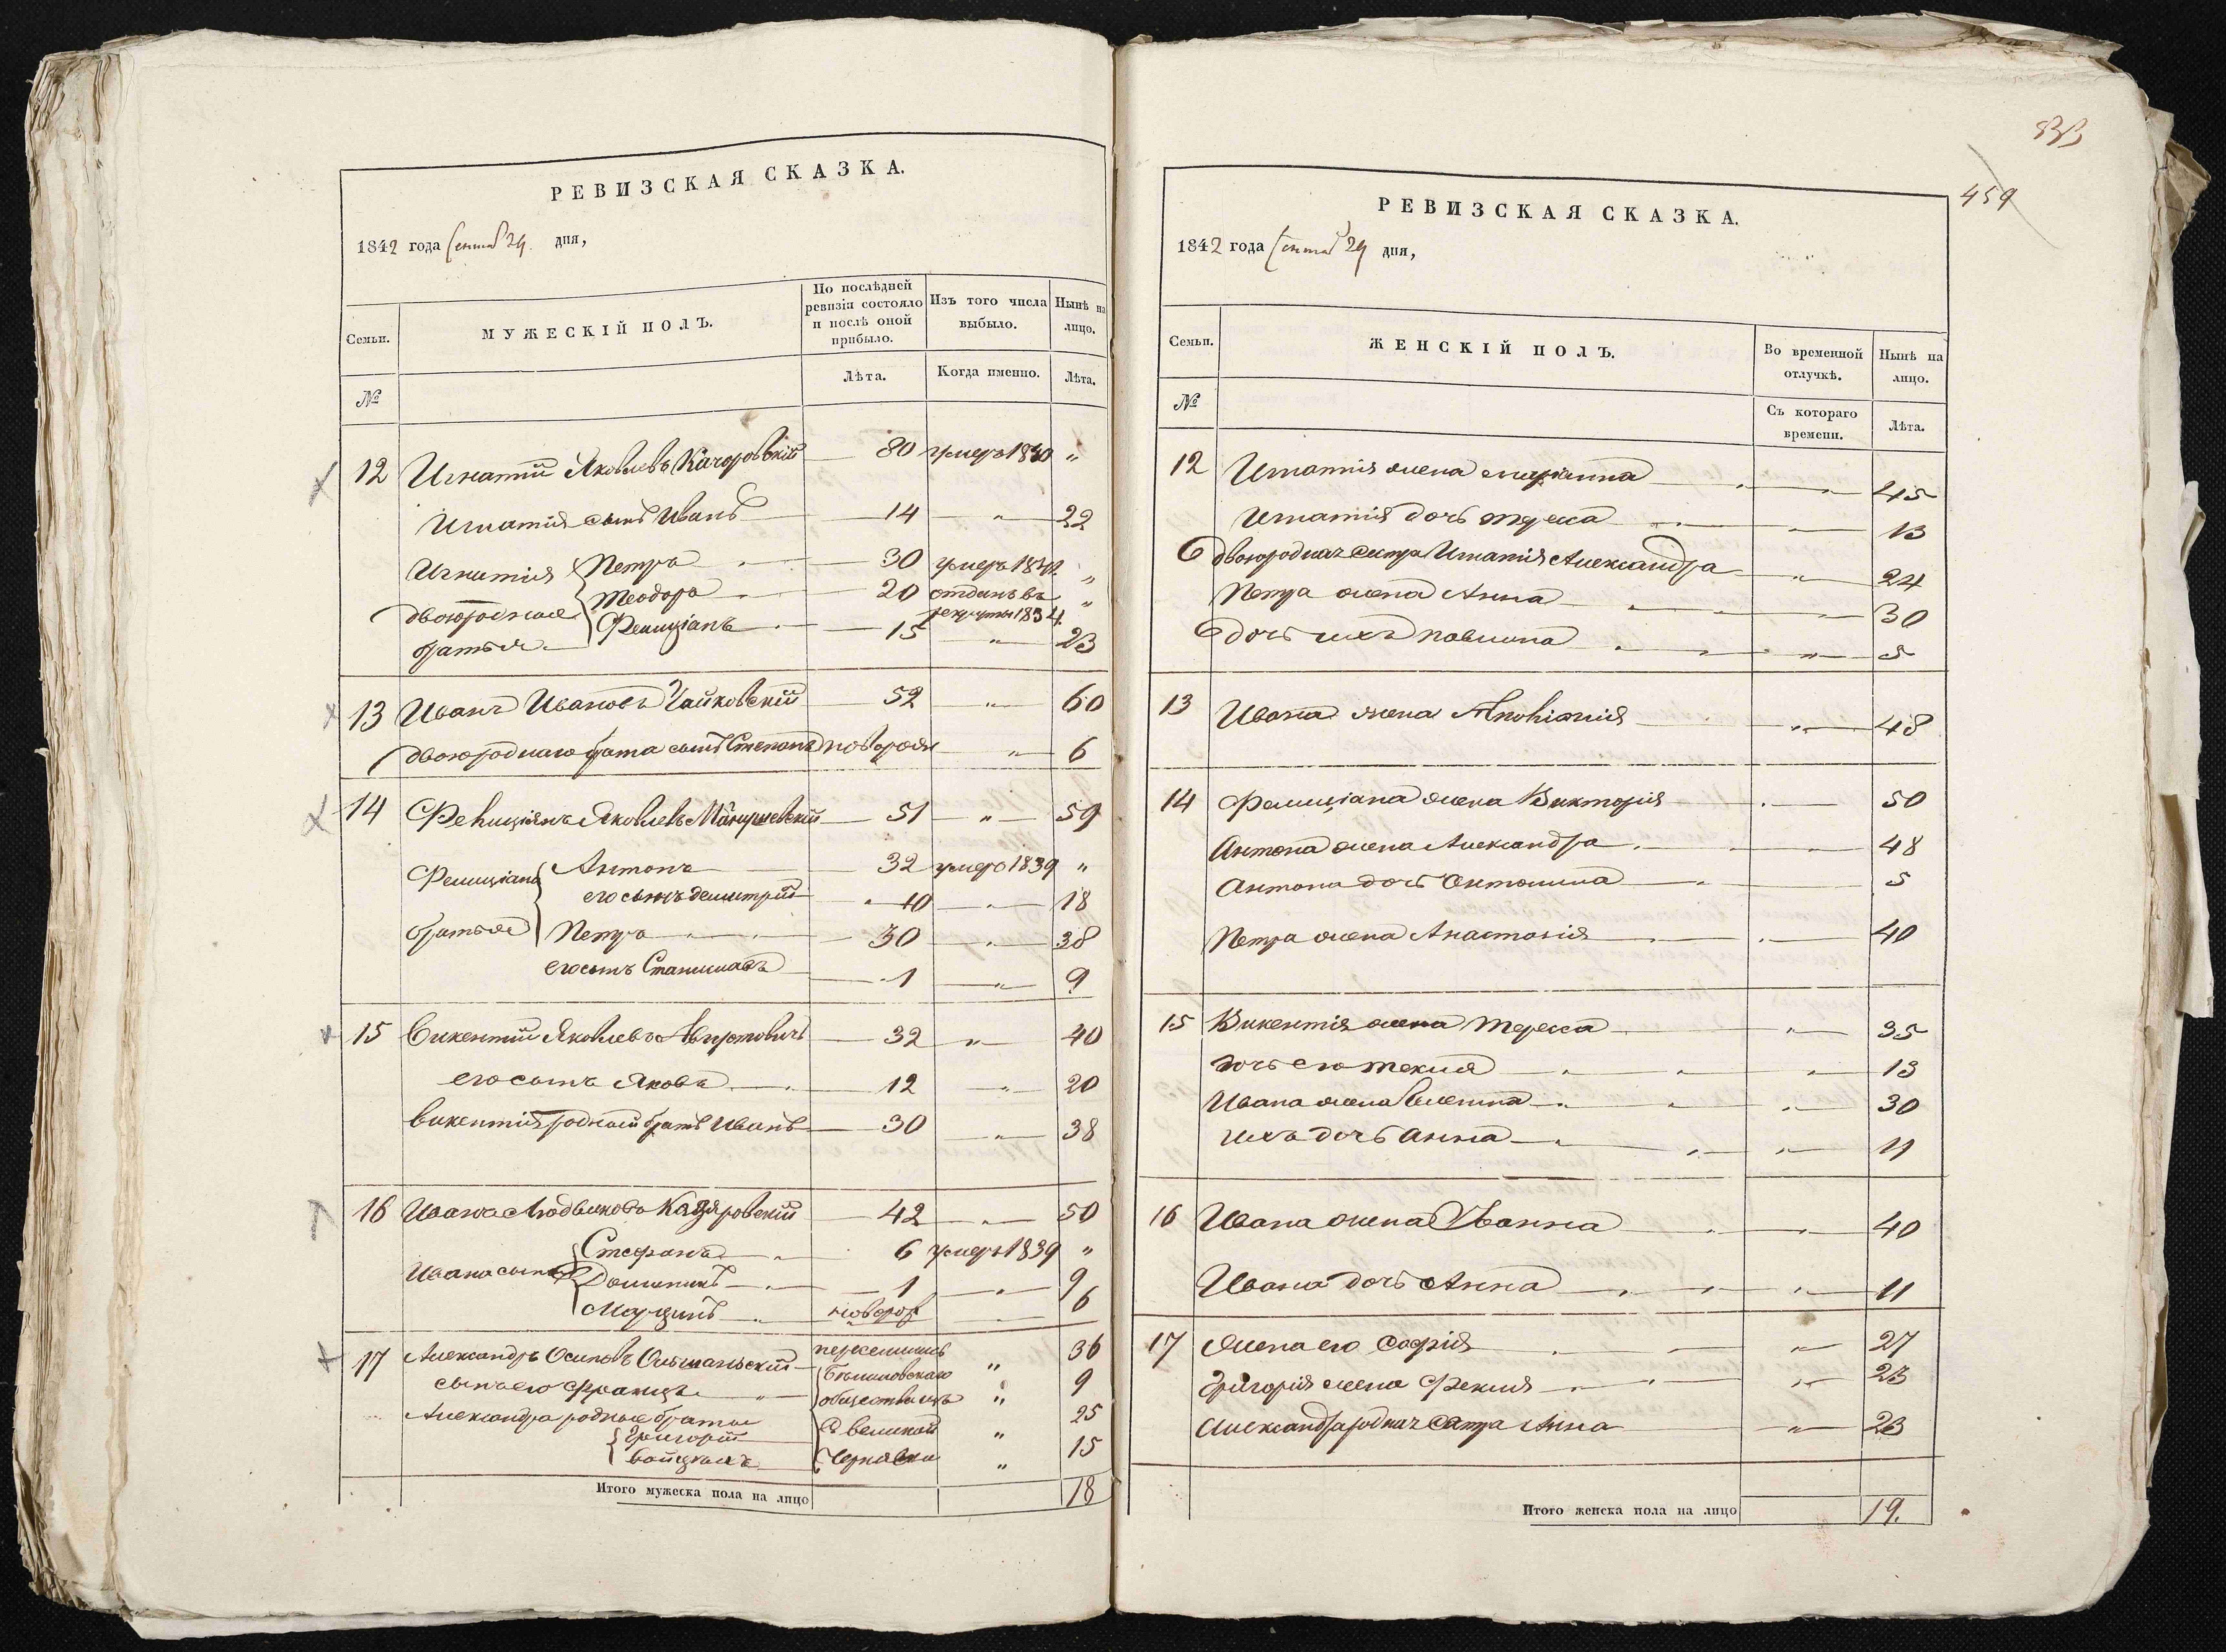 РЕВИЗСКАЯ СКАЗКА.
1842 года Сентяб 29 дня,
Семьи.
МУЖЕСКІЙ ПОЛЪ.
По послѣдней ревизіи состояло и послѣ оной прибыло.
Изъ того числа выбыло.
Нынѣ на лицо.
№
Лѣта.
Когда именно.
Лѣта.
12 Игнатій Яковлевъ Качоровскій 80 умеръ 1840 "
Игнатія сынъ Иванъ 14 " 22
Игнатія двоюродные братья
Петръ 30 умеръ "
Теодоръ 20 отданъ въ рекруты 1834 "
Фелиціанъ 15 " 23
13 Иванъ Ивановъ Чайковскій 52 " 60
двоюроднаго брата сынъ Степанъ новорож " 6
14 Фелиціанъ Яковлевъ 51 " 59
Фелиціана братья
Антонъ 32 умеръ 1839 "
его сынъ Демитрій 10 " 18
Петръ 30 " 38
его сынъ Станиславъ 1 " 9
15 Викентій Яковлевъ 32 " 40
его сынъ Яковъ 12 " 20
Викентія родный братъ Иванъ 30 " 38
16 Иванъ Людвиковъ 42 " 50
Ивана сыновья
Стефанъ 6 умеръ 1839 "
Доминикъ 1 " 9
Марцинъ новорож " 6
17 Александръ Осиповъ Ольшаньскій " 36
сынъ его Францъ " 9
Александра родные братья
Григорій " 25
Войцехъ " 15
переселились
общества изъ
С Великой
Чернявки
Итого мужеска пола на лицо 18
833
459
РЕВИЗСКАЯ СКАЗКА.
1842 года Сентяб 29 дня,
Семьи.
ЖЕНСКІЙ ПОЛЪ.
Во временной отлучкѣ.
Нынѣ на лицо.
№
Съ котораго времени.
Лѣта.
12 Игнатія жена Маріанна " 45
Игнатія дочь Тереса " 13
двоюродная сестра Игнатія Александра " 24
Петра жена Анна " 30
дочь ихъ Павлина " 5
13 Ивана жена " 48
14 Фелиціана жена Викторія " 50
Антона жена Александра " 48
Антона дочь Антонина 5
Петра жена Анастасія " 40
15 Викентія жена Тереса " 35
дочь его Текля " 13
Ивана жена " 30
ихъ дочь Анна " 11
16 Ивана жена Иванна " 40
Ивана дочь Анна " 11
17 Жена его Софія " 27
Григорія жена Фекля " 23
Александра родная сестра Анна " 23
Итого женска пола на лицо 19.